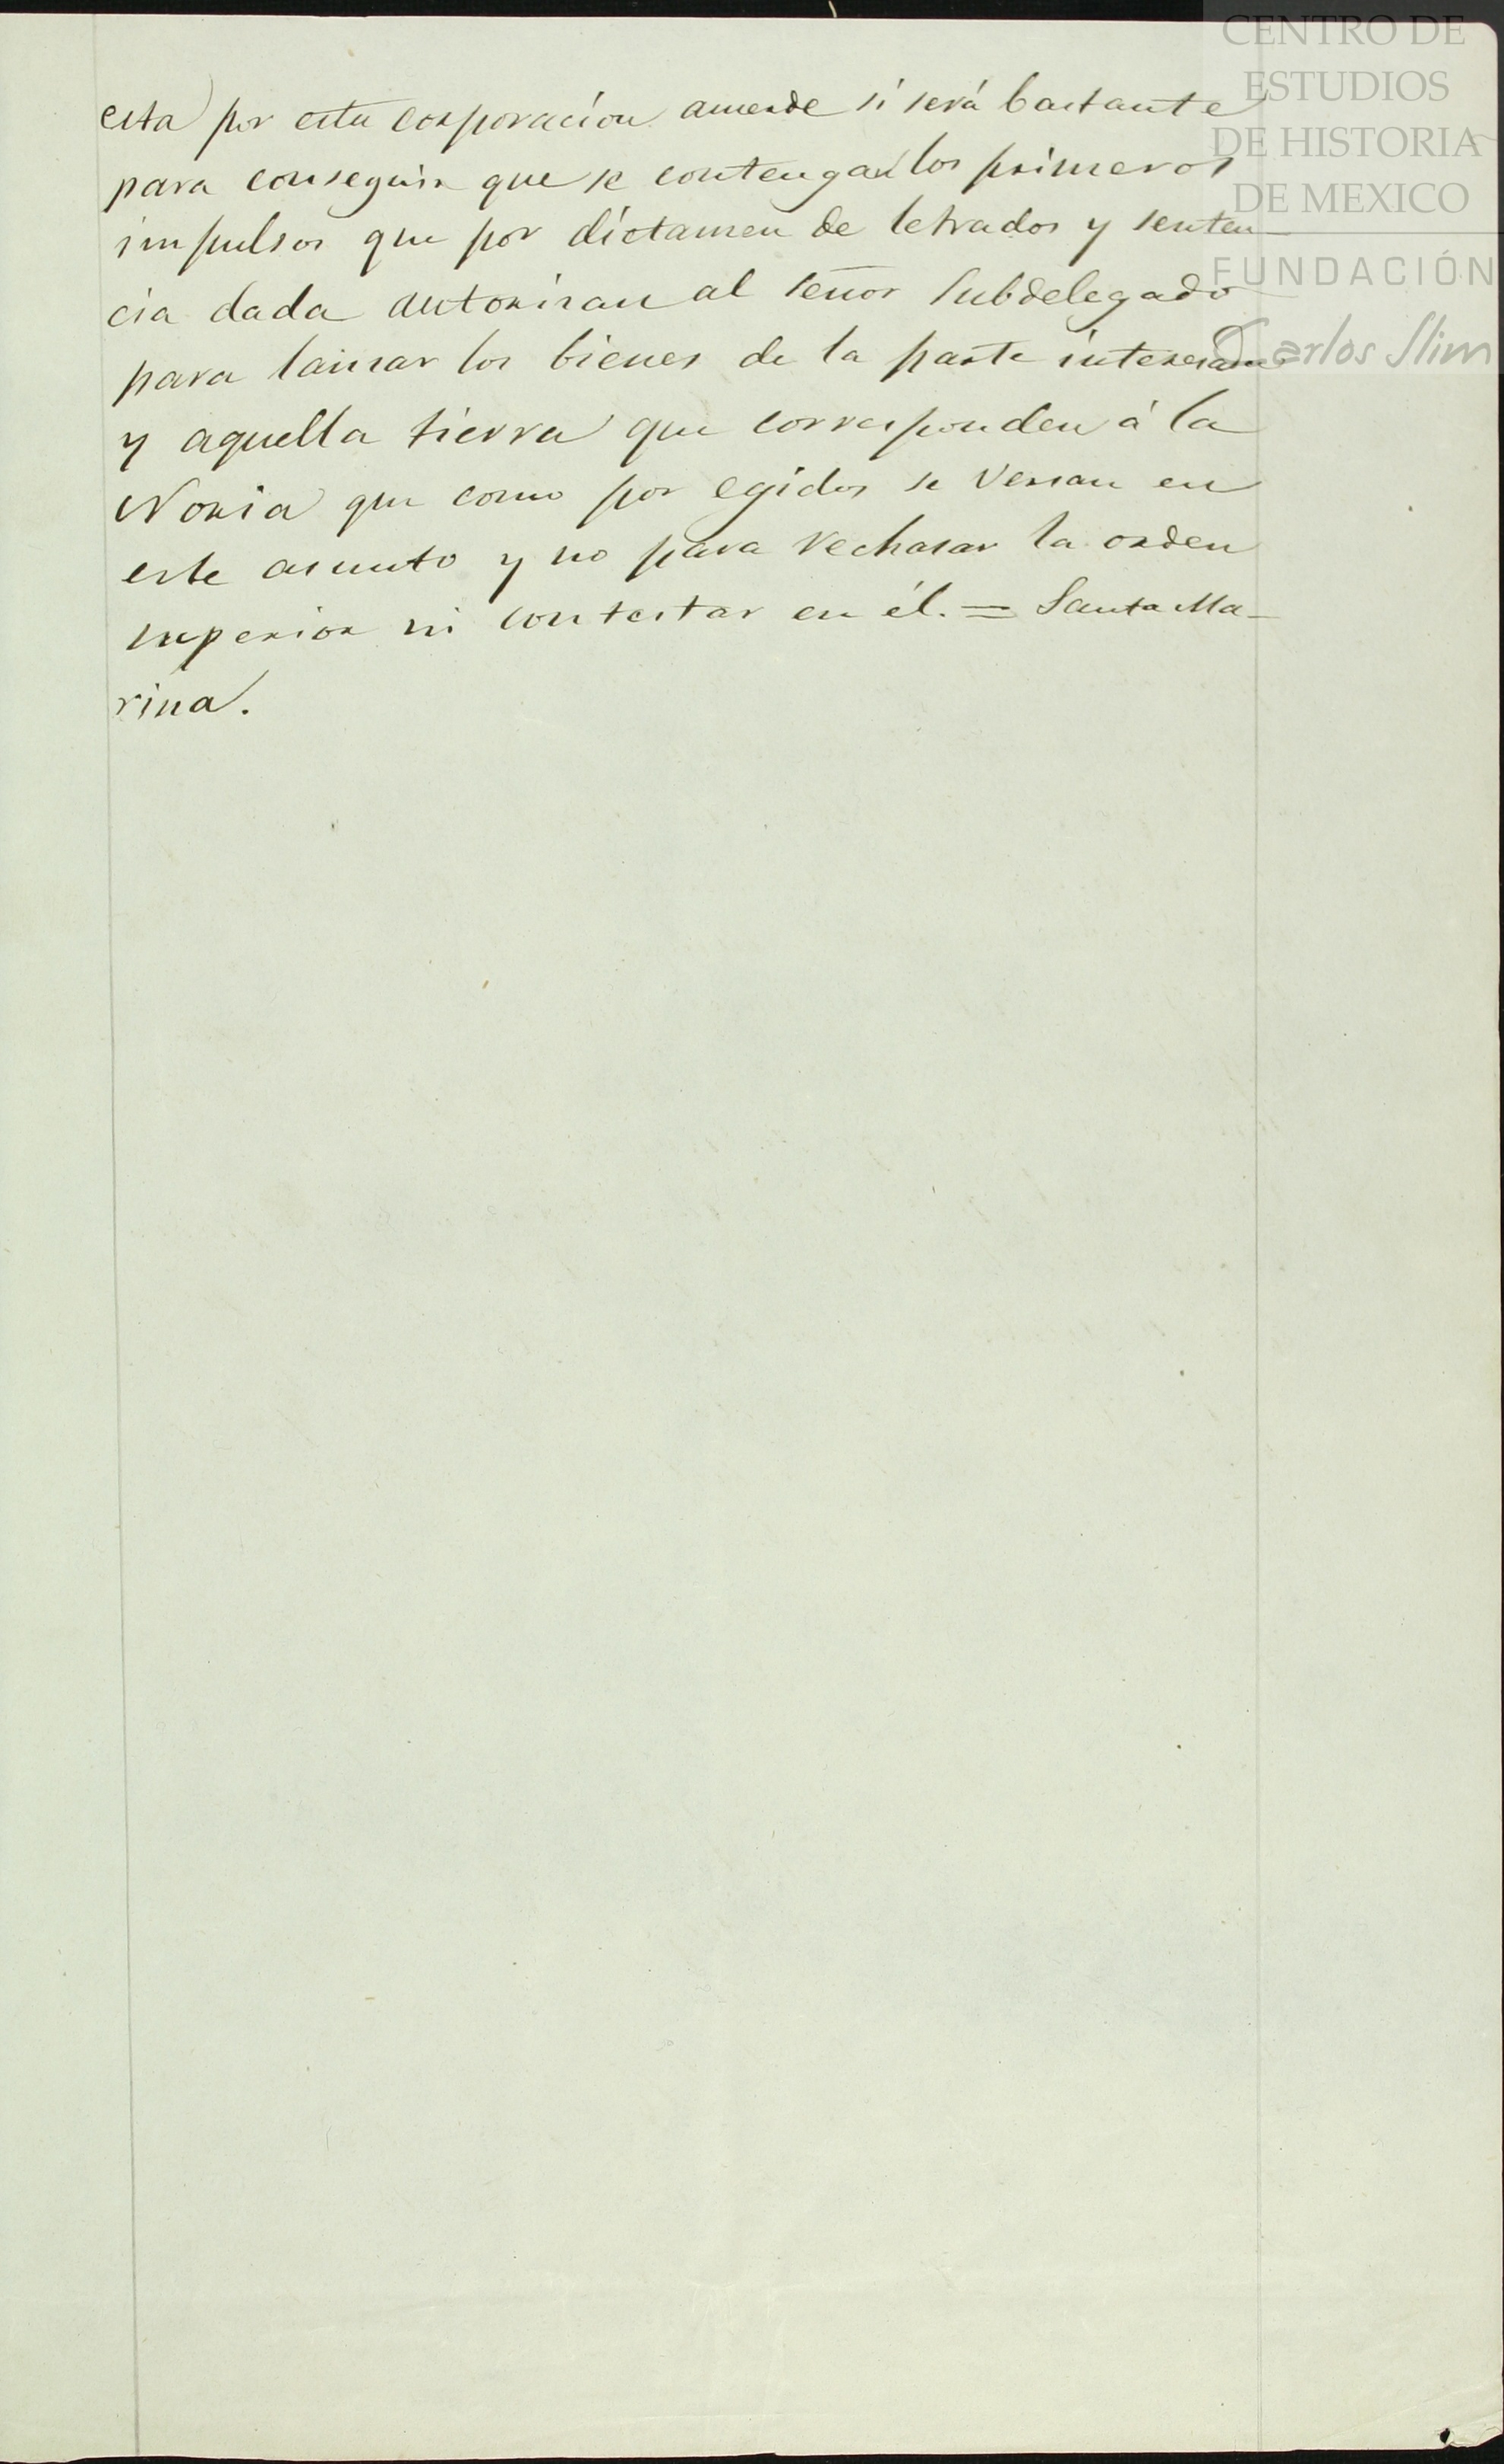 CENTRO DE
ESTUDIOS
DE HISTORIA
DE MEXICO
FUNDACIÓN
Carlos Slim
esta por esta corporacion acuerde si será bastante
para conseguir que se contengan los primeros
impulsos que por dictamen de letrados y senten
cia dada autorisan al señor Subdelegado
para lansar los bienes de la parte
y aquella tierra que corresponden á la
Noria que como por egidos se versan en
este asunto y no para rechasar la orden
superior ni contestar en él. = Santa Ma-
rina.